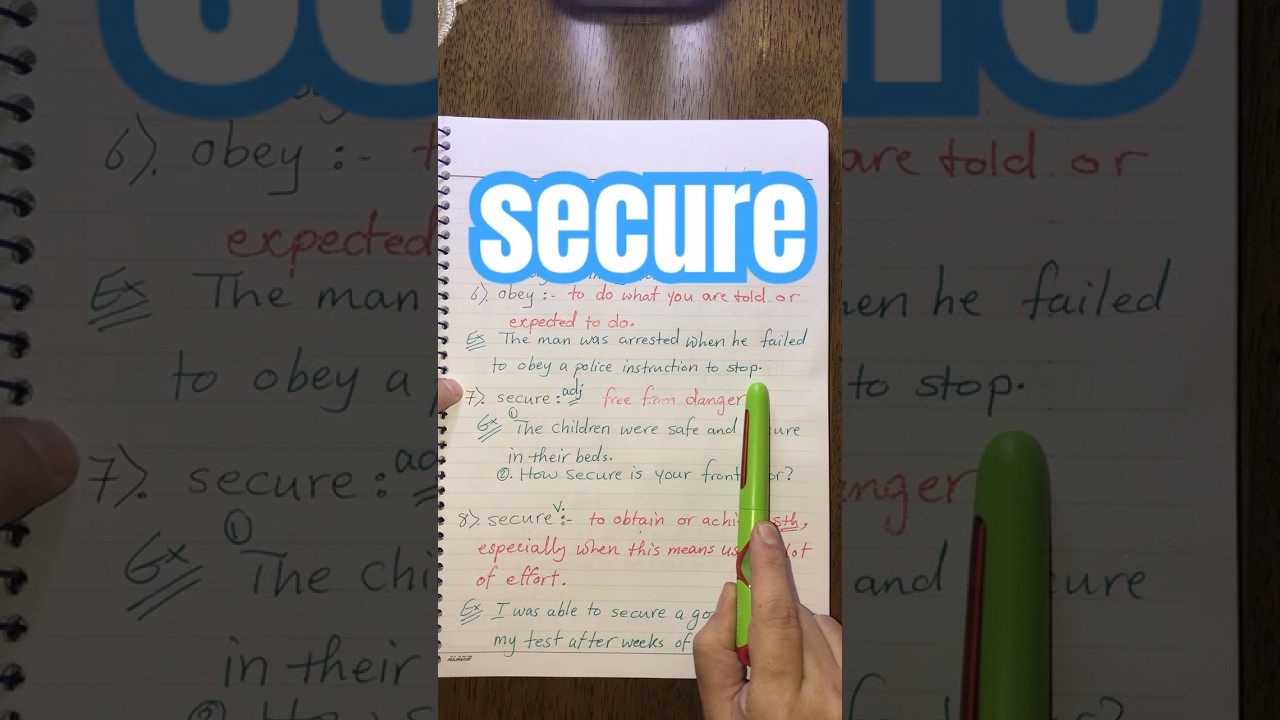 secure
6). obey :- to do what you are told or
expected to do.
Ex The man was arrested when he failed
to obey a police instruction to stop.
7). secure: adj free from danger
Ex ① The children were safe and
in their beds.
②. How secure is your front
8). secure v. :- to obtain or sth,
especially when this means lot
of effort.
Ex I was able to secure a
my test after weeks of
ALADIB